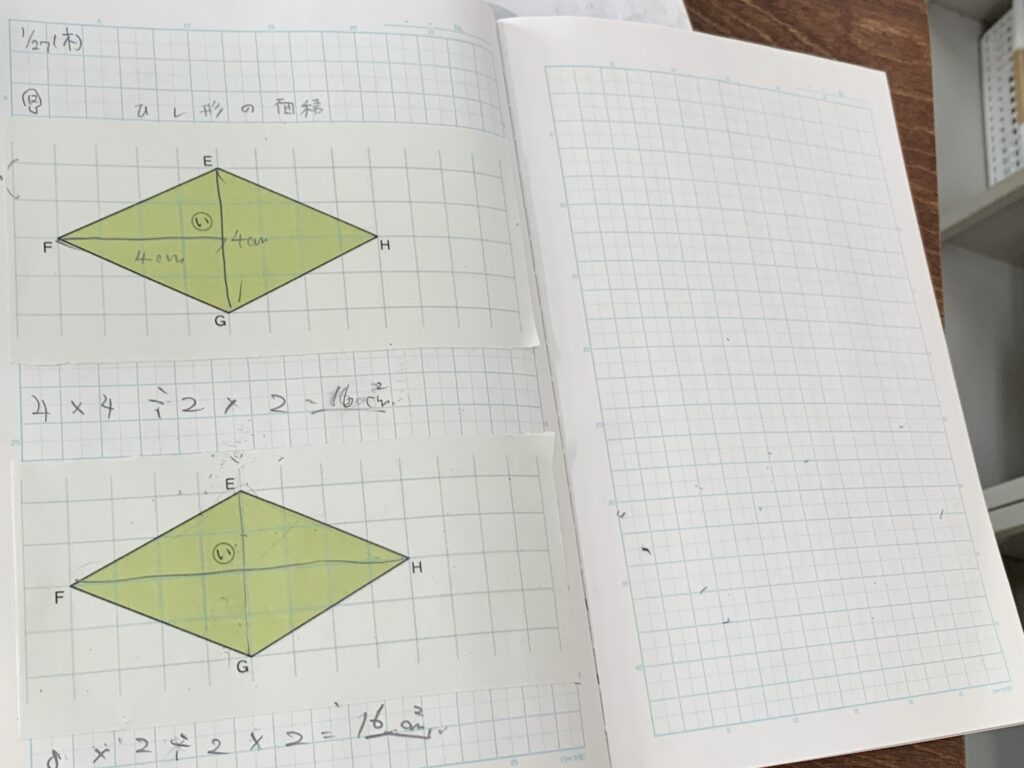 1/27(木)
日 ひし形の面積
E
い
F
4cm
4cm
H
G
4 × 4 ÷ 2 × 2 = 16cm²
E
い
F
H
G
8 × 2 ÷ 2 × 2 = 16cm²